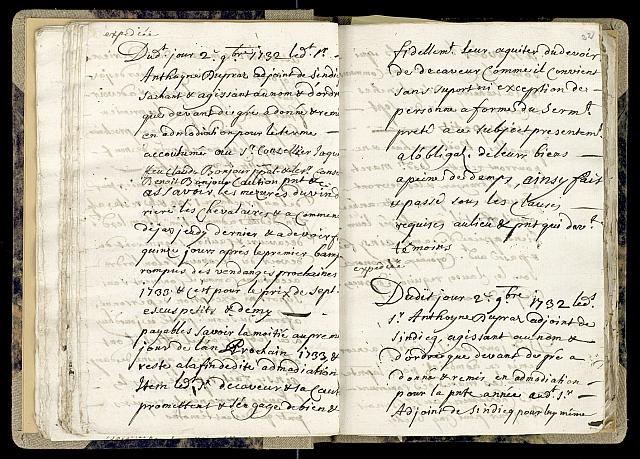 expediée
Dud.t jour 2.e 9bre 1732 led.t Sr.
Anthoyne Dupraz adjoint de Sindic
sachant & agissant au nom & d'ordre
que devant de gré a donné & remis
en admodiation pour le terme
accoutumé au Sr. Conseillier Jaques
feu Claude Bonjour
Benoit Bonjour Caution pnt &c
assavoir les
riere les Chevalaires & a commencé
desja jeudy dernier & a devoir
quinze jours apres le premier bamp
rompus des vendanges prochaines
1733 & c'est pour le prix de sept
escus petits & demy
payables savoir la moitié au premier
jour de l'an Prochain 1733 &
reste a la fin de dite admodiation
Item led.t Sr. decaveur & sa Caution
promettent & s'engage de bien &
32
fidellem.t leur aquiter du devoir
de decaveur Comme il Convient
sans suport ni exception de
personne a forme du Serm.t
presté a ce Subject presentem.t
a l'obliga.on de leurs biens
a peine de damps, ainsy fait
& passé sous les clauses
requises au lieu & pnt que dev.t
témoins
expediée
Dudit jour 2.e 9bre 1732 led.t
Sr. Anthoyne Dupraz adjoint de
Sindicq, agissant au nom &
d'ordre que devant de gré a
donné & remis en admodiation
pour la pnte année aud.t Sr.
Adjoint de Sindicq pour luy même